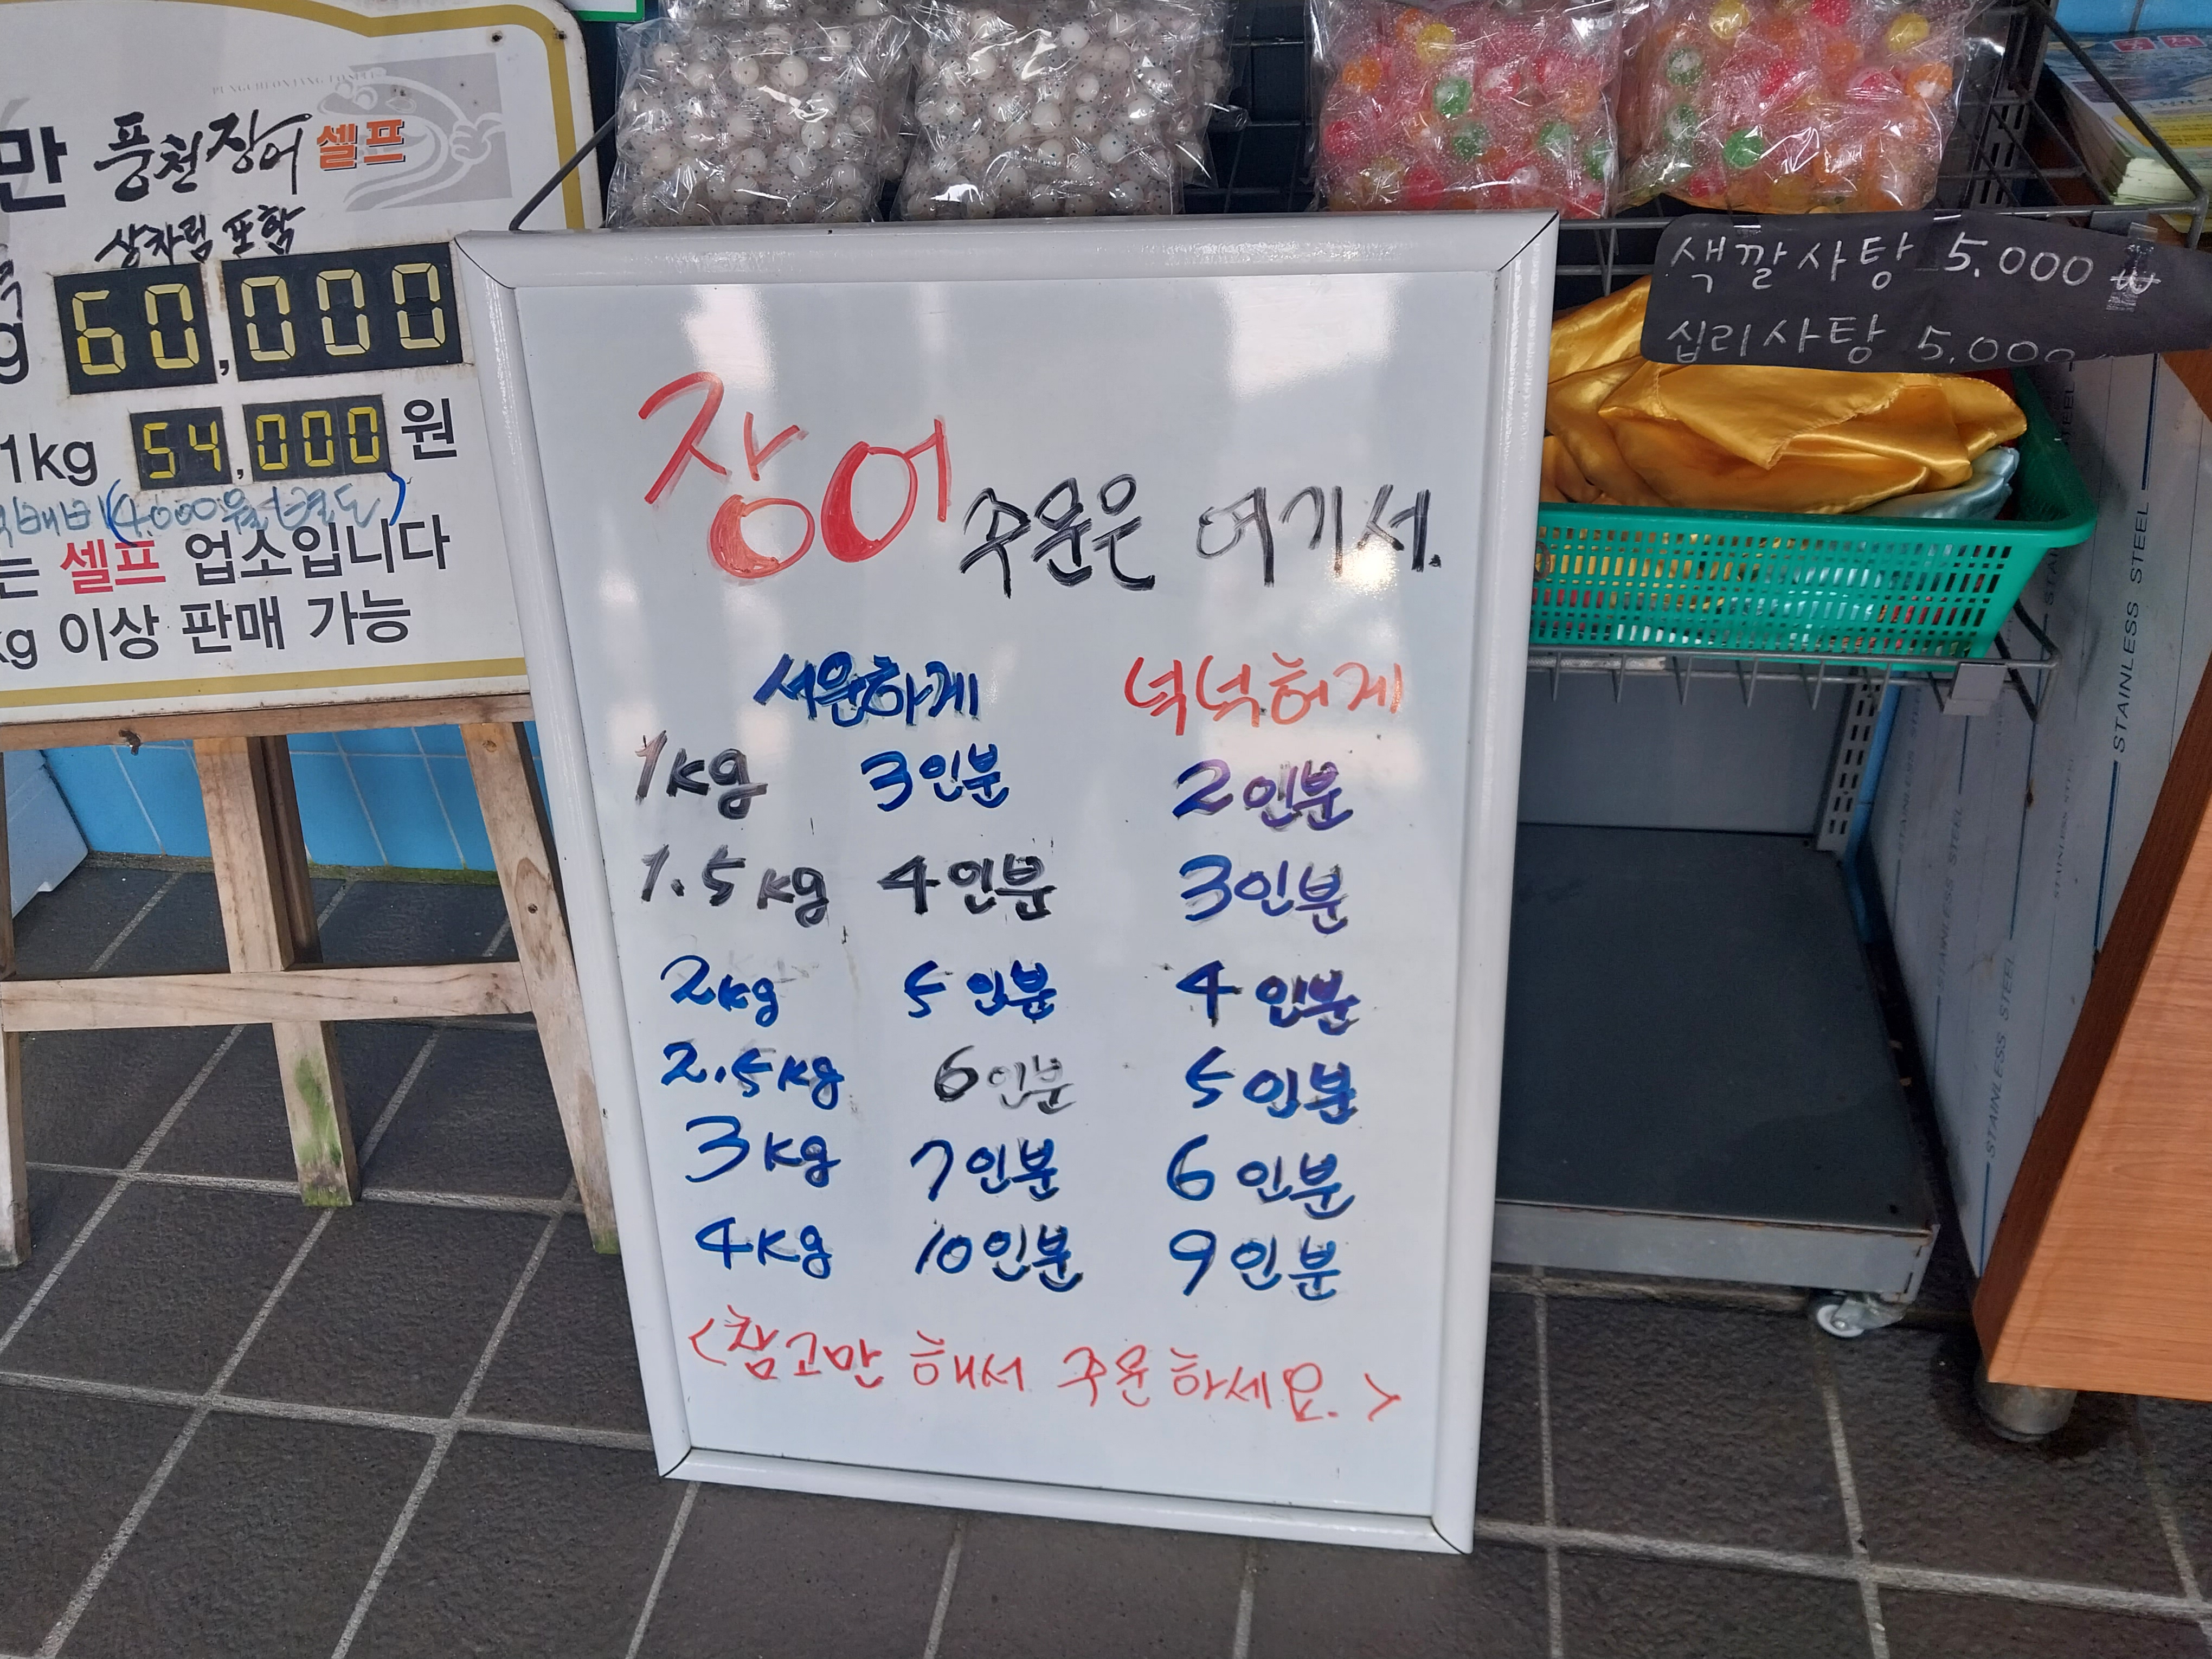 PUNGCHEONJANG
만 풍천장어 셀프
상차림 포함
g 60,000
1kg 54,000 원
(4.000원 별도)
는 셀프 업소입니다
kg 이상 판매 가능
장어 주문은 여기서.
서운하게 넉넉허게
1kg 3인분 2인분
1.5kg 4인분 3인분
2kg 5인분 4인분
2.5kg 6인분 5인분
3kg 7인분 6인분
4kg 10인분 9인분
<참고만 해서 주문하세요.>
색깔사탕 5.000 ₩
십리사탕 5.000
STAINLESS STEEL
STAINLESS STEEL
STAINLESS STEEL